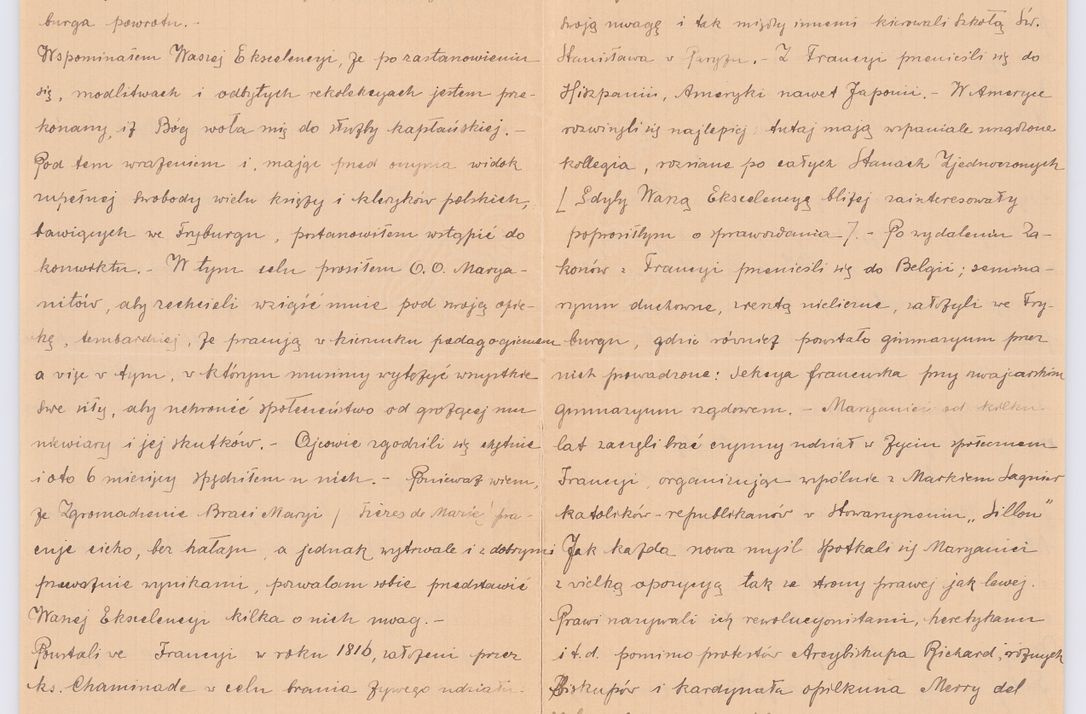 burga powrotu. -
Wspominałem Waszej Ekscelencyi, że po zastanowieniu
się, modlitwach i odbytych rekolekcyach jestem prze-
konany, iż Bóg woła mię do służby kapłańskiej. -
Pod tem wrażeniem i, mając przed oczyma widok
zupełnej swobody wielu księży i kleryków polskich,
bawiących we Fryburgu, postanowiłem wstąpić do
konwiktu. - W tym celu prosiłem O.O. Marya-
nitów, aby zechcieli wziąść mnie pod swoją opie-
kę, tembardziej, że pracują w kierunku pedagogicznem
a więc w tym, w którym musimy wytożyć wszystkie
swe siły, aby uchronić społeczeństwo od grożącej mu
niewiary i jej skutków. - Ojcowie zgodzili się chętnie
i oto 6 miesięcy spędziłem u nich. - Ponieważ wiem,
że Zgromadzenie Braci Maryi / Frères de Marie/ pra-
cuje cicho, bez hałasu, a jednak wytrwale i z dobrymi
przeważnie wynikami, pozwalam sobie przedstawić
Waszej Ekscelencyi kilka o nich uwag. -
Powstali we Francyi w roku 1816, założeni przez
ks. Chaminade w celu brania żywego udziału.
swoją uwagę i tak między innemi kierowali Szkołą Św.
Stanisława w Paryżu. - Z Francyi przenieśli się do
Hiszpanii, Ameryki nawet Japonii. - W Ameryce
rozwinęli się najlepiej: tutaj mają wspaniale urządzone
kollegia, rozsiane po całych Stanach Zjednoczonych
[ Gdyby Waszą Ekscelencyę bliżej zainteresowały
poprosiłbym o sprawozdania ]. - Po wydaleniu Za-
konów z Francyi przenieśli się do Belgii; semina-
ryum duchowne, zresztą nieliczne, założyli we Fry-
burgu, gdzie również powstało gimnazyum przez
nich prowadzone: sekcya francuska przy szwajcarskim
gimnazyum rządowem. - Maryanici od kilku
lat zaczęli brać czynny udział w życiu społecznem
Francyi, organizując wspólnie z Markiem Sagnier
katolików-republikanów w stowarzyszeniu „Sillon"
Jak każda nowa myśl spotkali się Maryanici
z wielką opozycyą tak ze strony prawej jak lewej.
Prawi nazywali ich rewolucyonistami, heretykami
i t.d. pomimo protestów Arcybiskupa Richard, różnych
Biskupów i kardynała opiekuna Merry del